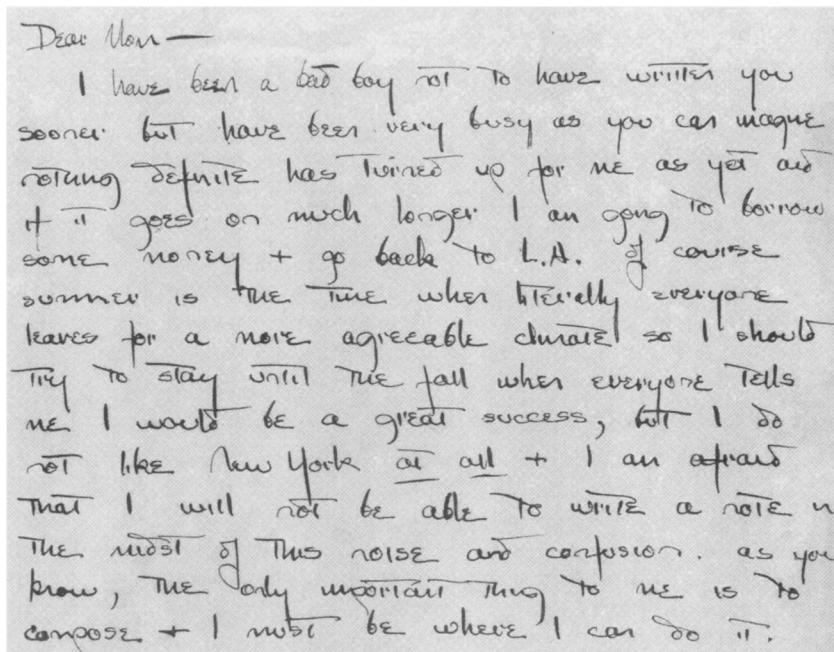 Dear Mom —
I have been a bad boy not to have written you
sooner but have been very busy as you can imagine
nothing definite has turned up for me as yet and
if it goes on much longer I am going to borrow
some money + go back to L.A. Of course
summer is the time when literally everyone
leaves for a more agreeable climate so I should
try to stay until the fall when everyone tells
me I would be a great success, but I do
not like New York at all + I am afraid
that I will not be able to write a note in
the midst of this noise and confusion. as you
know, the only important thing to me is to
compose + I must be where I can do it.